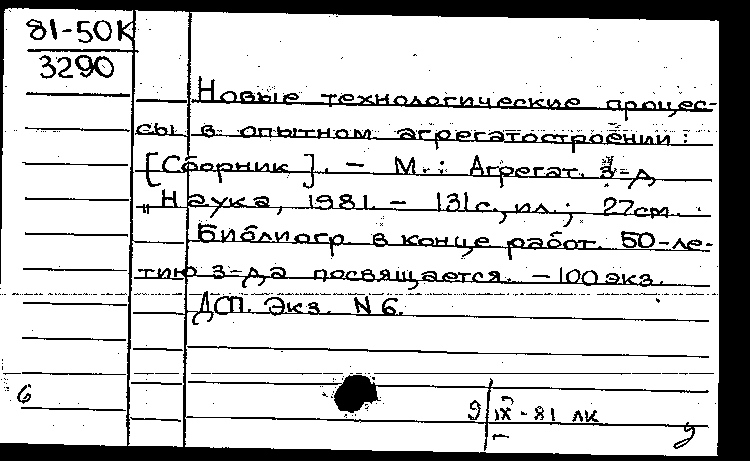 81-50К
3290
Новые технологические процес-
сы в опытном агрегатостроении:
[Сборник]. - М.: Агрегат. з-д
"Наука, 1981. - 131с., ил.; 27см.
Библиогр. в конце работ. 50-ле-
тию з-да посвящается. - 100 экз.
ДСП. Экз. N 6.
6
9 IX-81 ЛК
у